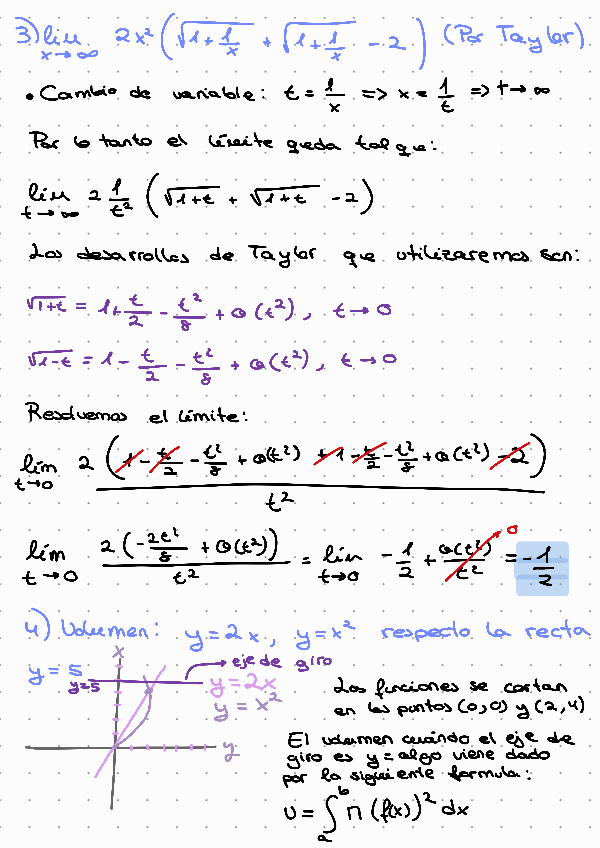 3) lim x→∞ 2x² (√(1+1/x) + √(1+1/x) - 2) (Por Taylor)
• Cambio de variable: t = 1/x => x = 1/t => t→∞
Por lo tanto el límite queda tal que:
lim t→∞ 2 1/t² (√(1+t) + √(1+t) - 2)
Los desarrollos de Taylor que utilizaremos son:
√(1+t) = 1 + t/2 - t²/8 + o(t²), t→0
√(1-t) = 1 - t/2 - t²/8 + o(t²), t→0
Resolvemos el límite:
lim t→0 2 (1 - t/2 - t²/8 + o(t²) + 1 - t/2 - t²/8 + o(t²) - 2) / t²
lim t→0 2 (-2t²/8 + o(t²)) / t² = lim t→0 -1/2 + o(t²)/t² 0 = -1/2
4) Volumen: y = 2x, y = x² respecto la recta
y = 5
x
eje de giro
y=5
y = 2x
y = x²
y
Las funciones se cortan
en los puntos (0,0) y (2,4)
El volumen cuando el eje de
giro es y = algo viene dado
por la siguiente formula:
V = ∫ₐᵇ π (f(x))² dx